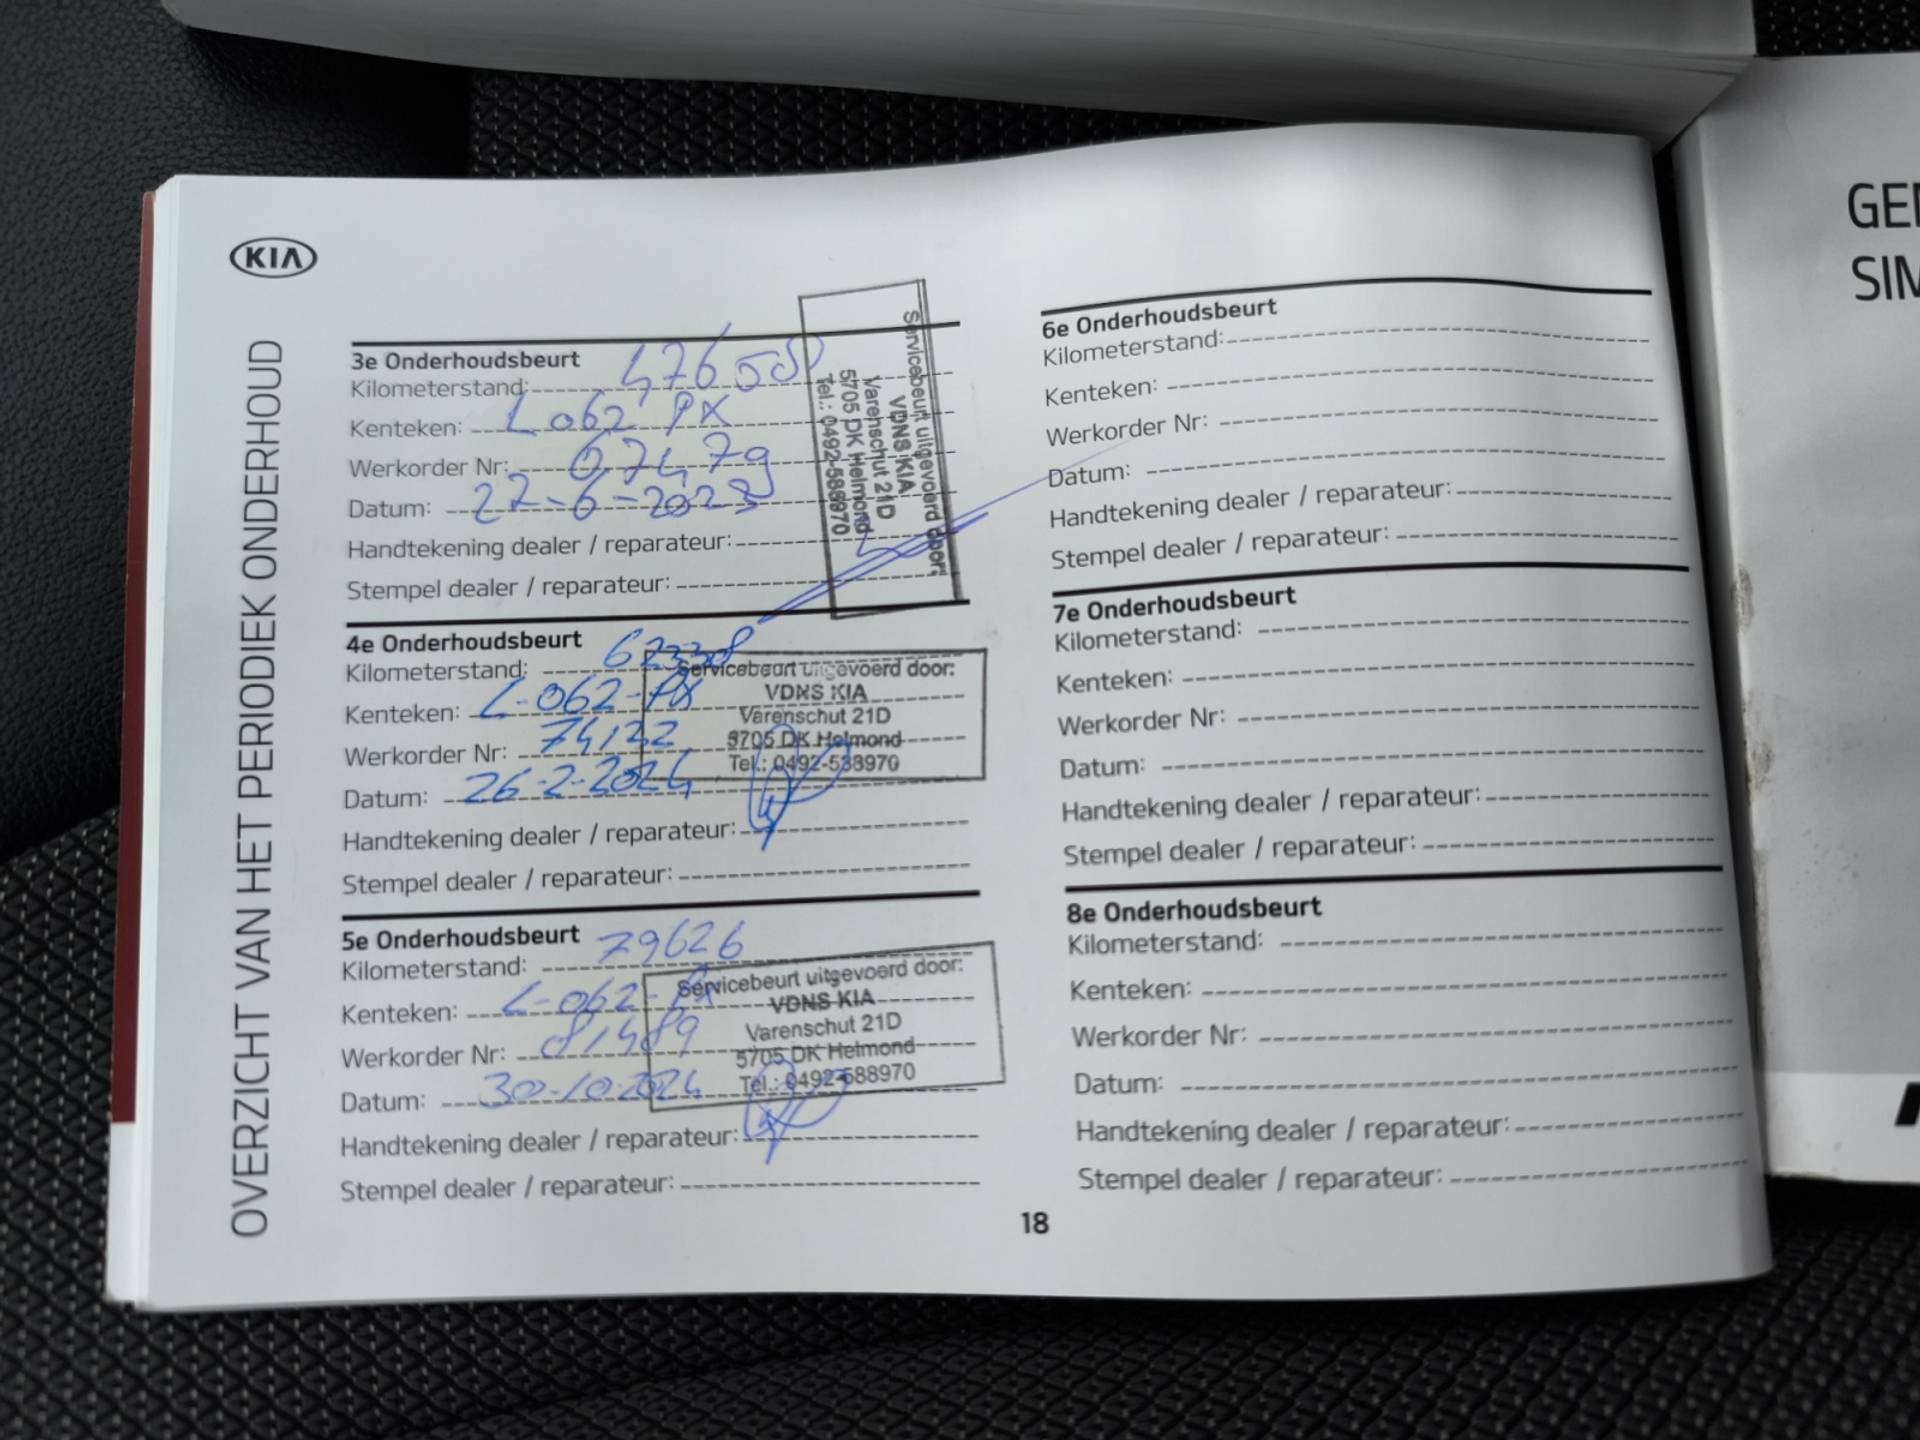 KIA
OVERZICHT VAN HET PERIODIEK ONDERHOUD
3e Onderhoudsbeurt
Kilometerstand: 47608
Kenteken: L 062 PX
Werkorder Nr: 67479
Datum: 27-6-2023
Handtekening dealer / reparateur:
Stempel dealer / reparateur:
Servicebeurt uitgevoerd door:
VDNS KIA
Varenschut 21D
5705 DK Helmond
Tel.: 0492-588970
4e Onderhoudsbeurt
Kilometerstand: 62338
Kenteken: L-062-PX
Werkorder Nr: 74122
Datum: 26-2-2024
Handtekening dealer / reparateur:
Stempel dealer / reparateur:
Servicebeurt uitgevoerd door:
VDNS KIA
Varenschut 21D
5705 DK Helmond
Tel.: 0492-588970
5e Onderhoudsbeurt
Kilometerstand: 79626
Kenteken: L-062-PX
Werkorder Nr: 81489
Datum: 30-10-2024
Handtekening dealer / reparateur:
Stempel dealer / reparateur:
Servicebeurt uitgevoerd door:
VDNS KIA
Varenschut 21D
5705 DK Helmond
Tel.: 0492-588970
6e Onderhoudsbeurt
Kilometerstand:
Kenteken:
Werkorder Nr:
Datum:
Handtekening dealer / reparateur:
Stempel dealer / reparateur:
7e Onderhoudsbeurt
Kilometerstand:
Kenteken:
Werkorder Nr:
Datum:
Handtekening dealer / reparateur:
Stempel dealer / reparateur:
8e Onderhoudsbeurt
Kilometerstand:
Kenteken:
Werkorder Nr:
Datum:
Handtekening dealer / reparateur:
Stempel dealer / reparateur:
18